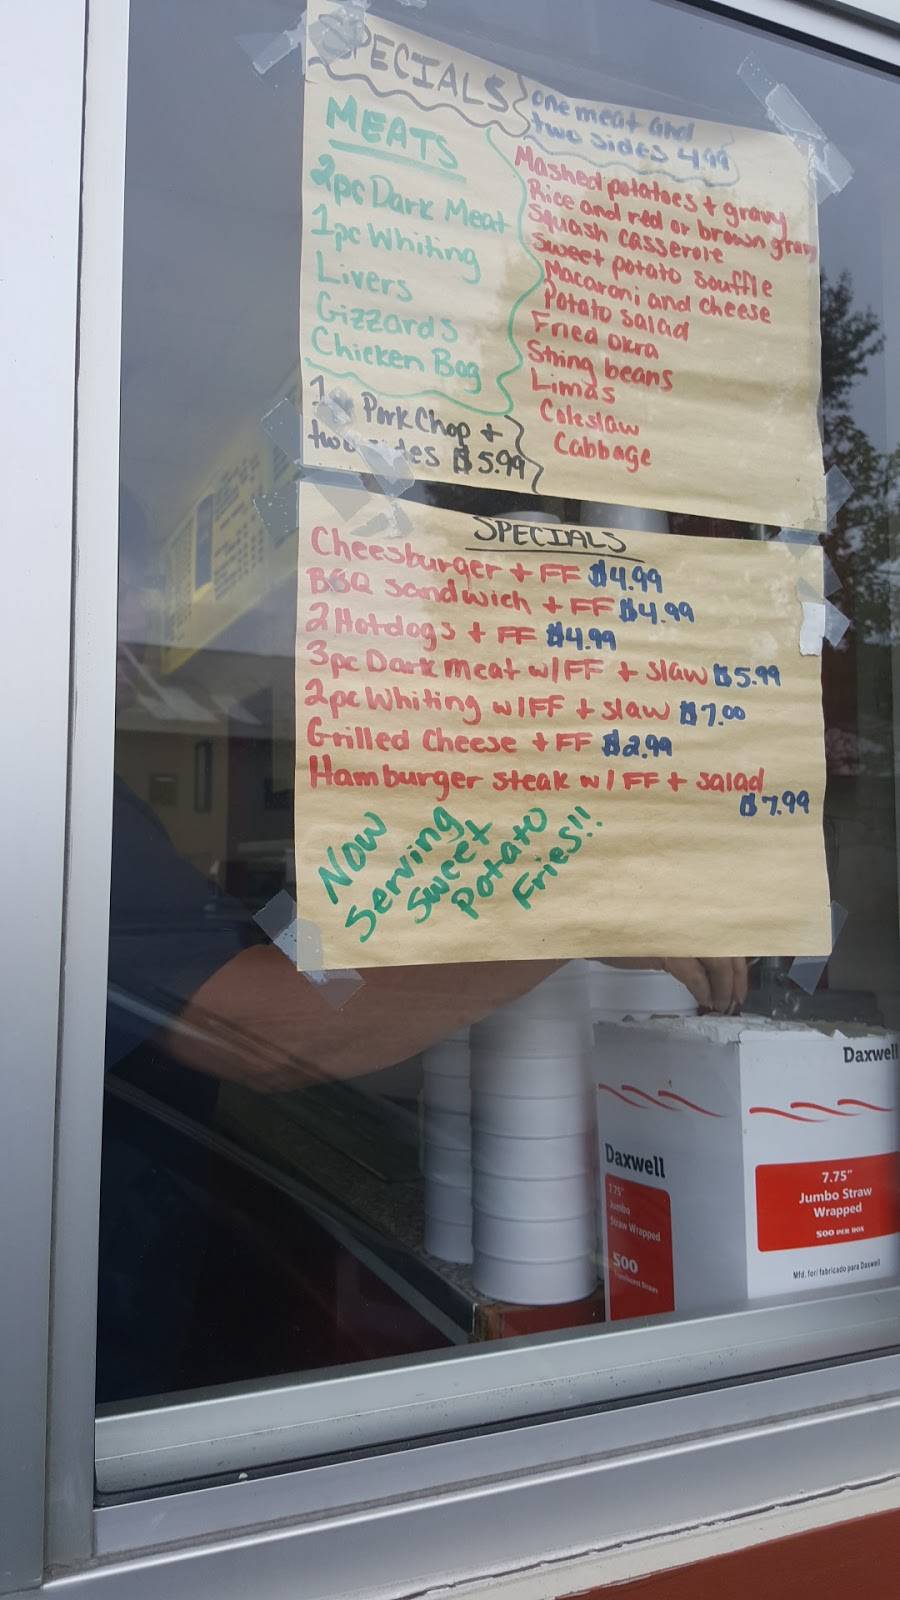 SPECIALS
one meat and
two sides 4.99
MEATS
2pc Dark Meat
1pc Whiting
Livers
Gizzards
Chicken Bog
Mashed potatoes + gravy
Rice and red or brown gravy
Squash casserole
Sweet potato souffle
Macaroni and cheese
Potato salad
Fried okra
String beans
Limas
Coleslaw
Cabbage
Pork Chop +
$5.99
SPECIALS
Cheesburger + FF $4.99
BBQ sandwich + FF $4.99
2 Hotdogs + FF $4.99
3pc Dark meat w/FF + slaw $5.99
2pc Whiting w/FF + slaw $7.00
Grilled Cheese + FF $2.99
Hamburger steak w/FF + salad
$7.99
Now
Serving
Sweet
Potato
Fries!!
Daxwell
7.75"
Jumbo Straw
Wrapped
500 PER BOX
Mfd. for/ fabricado para Daxwell
Daxwell
7.75"
Jumbo
Straw Wrapped
500